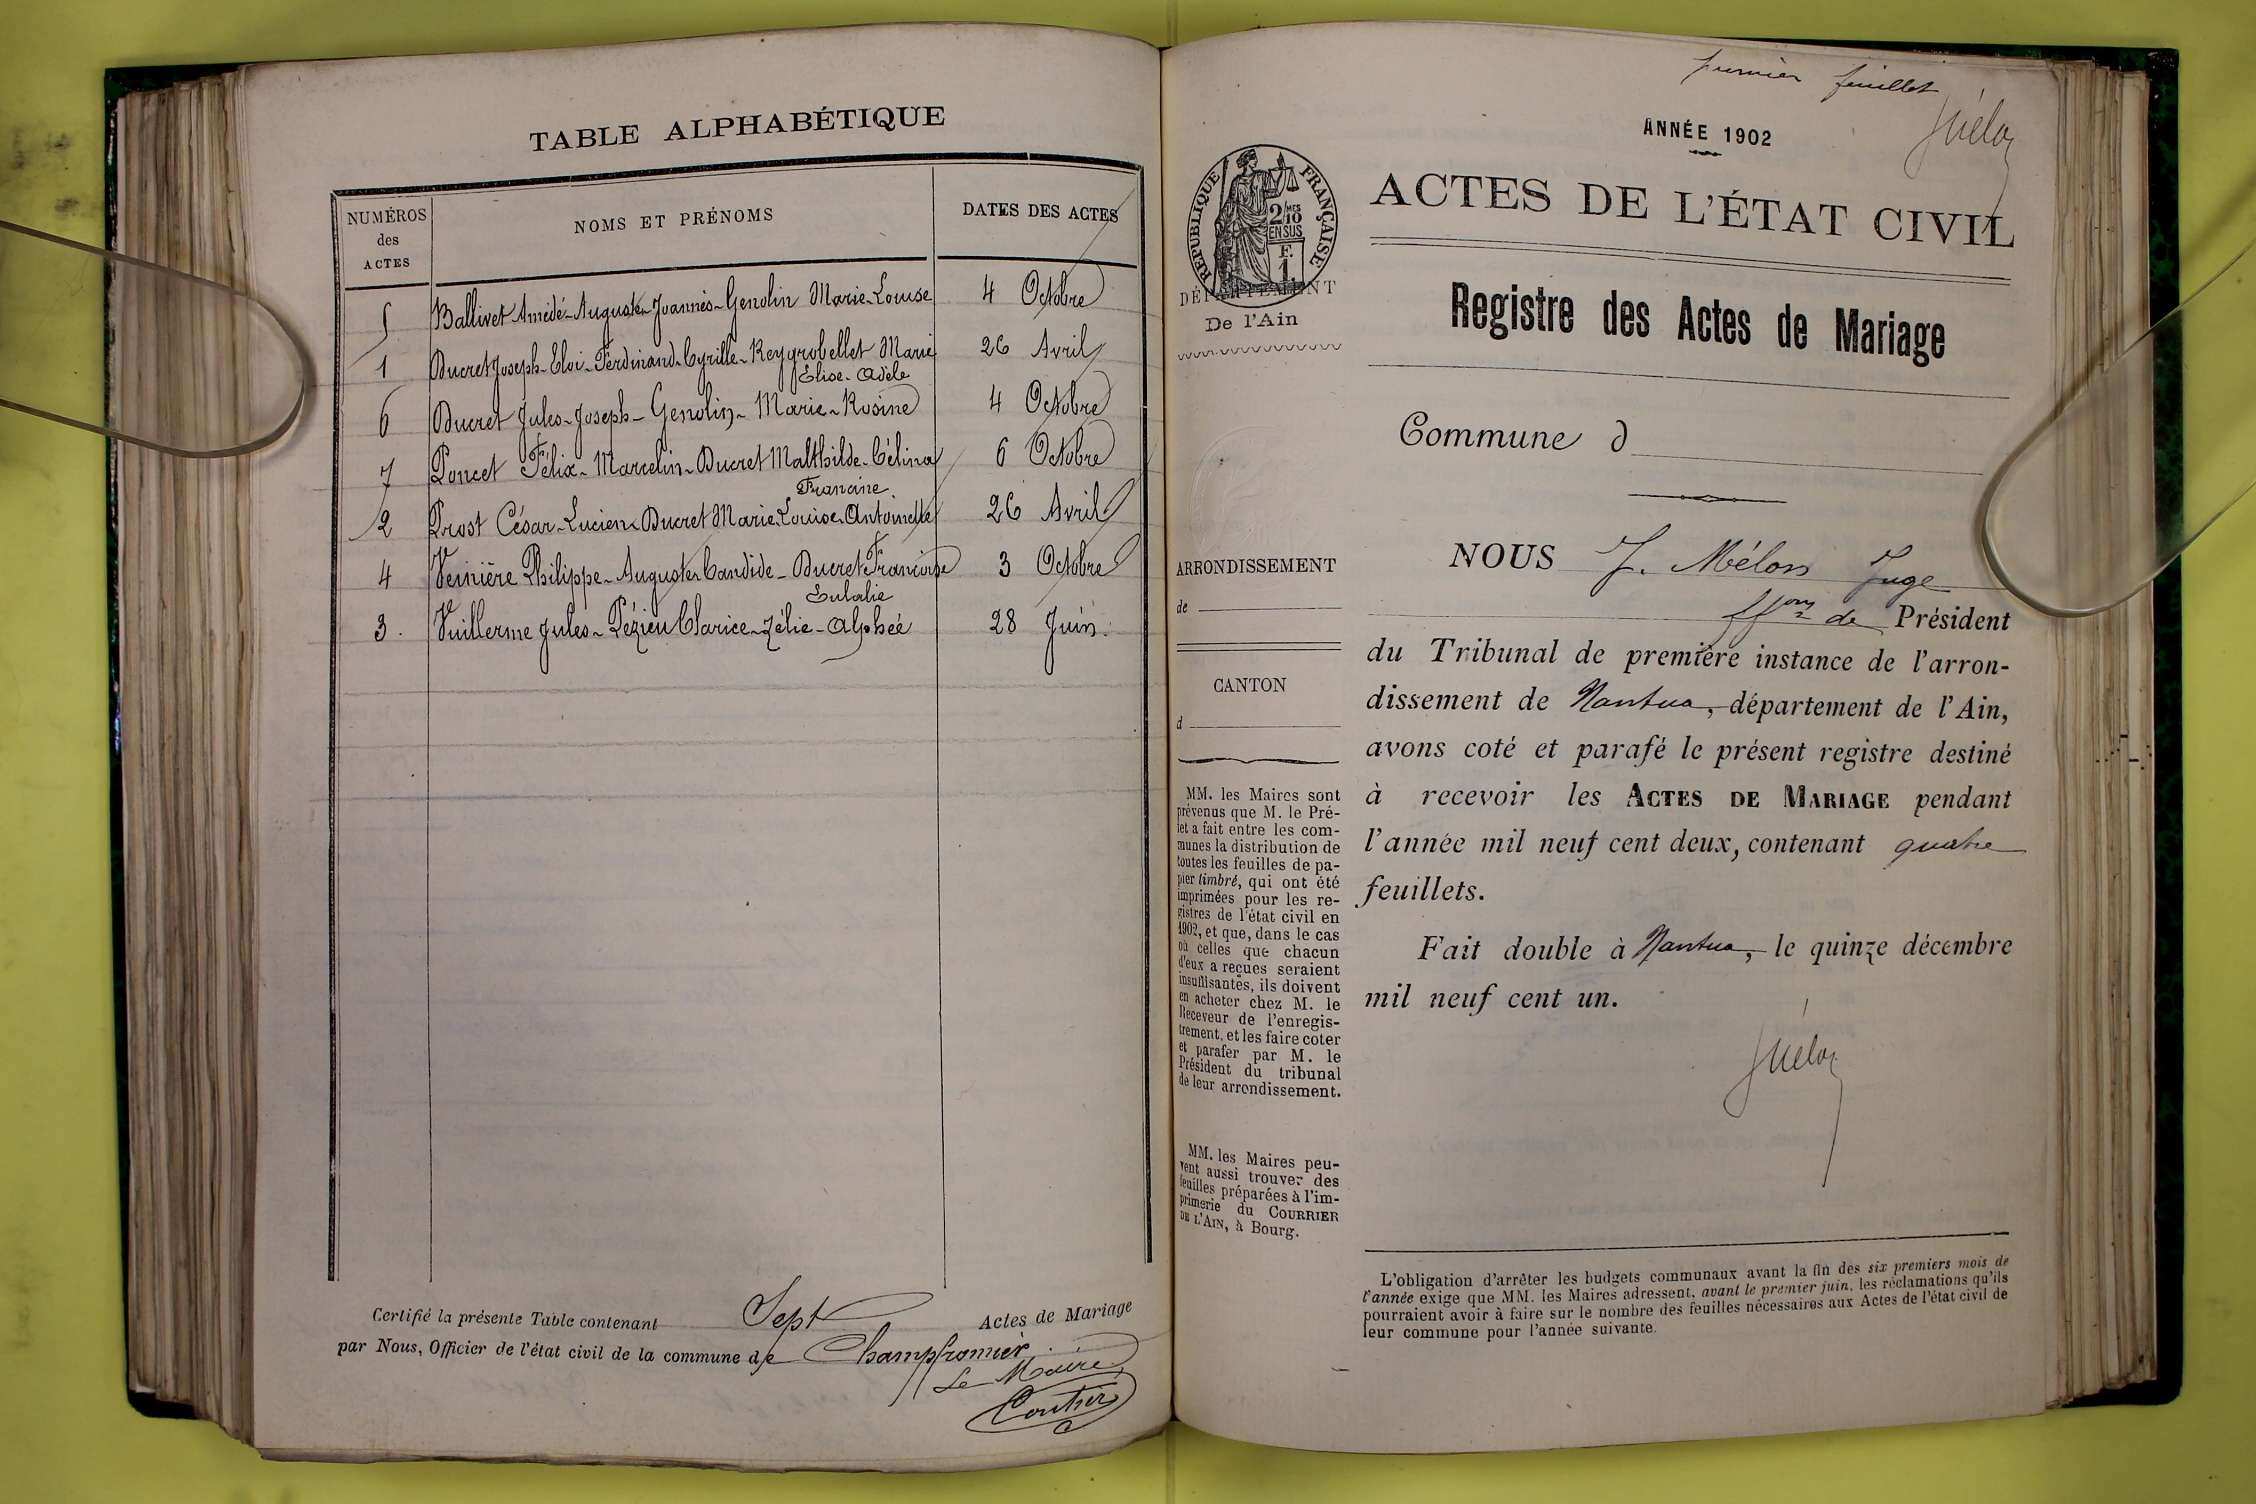 TABLE ALPHABÉTIQUE
NUMÉROS des ACTES
NOMS ET PRÉNOMS
DATES DES ACTES
5 Ballivet Amédé-Auguste-Joannès-Genolin Marie-Louise 4 Octobre
1 Ducret Joseph-Eloi-Ferdinand-Cyrille-Reygrobellet Marie 26 Avril
Elise-Adèle
6 Ducret Jules-Joseph-Genolin-Marie-Rosine 4 Octobre
7 Poncet Félix-Marcelin-Ducret Malthilde-Célina 6 Octobre
Francine
2 Prost César-Lucien-Ducret Marie-Louise-Antoinette 26 Avril
4 Veinière Philippe-Auguste-Candide-Ducret Françoise 3 Octobre
Eulalie
3. Vuillerme Jules-Pézieu Clarice-Zélie-Alphée 28 Juin.
Certifié la présente Table contenant Sept Actes de Mariage
par Nous, Officier de l'état civil de la commune de Champfromier
Le Maire
Coutier
premier feuillet
ANNÉE 1902
ACTES DE L'ÉTAT CIVIL
RÉPUBLIQUE FRANÇAISE
2/10 MES
EN SUS
F.
1
DÉPARTEMENT
De l'Ain
Registre des Actes de Mariage
Commune d
ARRONDISSEMENT
de
CANTON
d
MM. les Maires sont
prévenus que M. le Pré-
fet a fait entre les com-
munes la distribution de
toutes les feuilles de pa-
pier timbré, qui ont été
imprimées pour les re-
gistres de l'état civil en
1902, et que, dans le cas
où celles que chacun
d'eux a reçues seraient
insuffisantes, ils doivent
en acheter chez M. le
Receveur de l'enregis-
trement, et les faire coter
et parafer par M. le
Président du tribunal
de leur arrondissement.
MM. les Maires peu-
vent aussi trouver des
feuilles préparées à l'im-
primerie du COURRIER
DE L'AIN, à Bourg.
NOUS J. Mélon Juge
ffons de Président
du Tribunal de première instance de l'arron-
dissement de Nantua, département de l'Ain,
avons coté et parafé le présent registre destiné
à recevoir les ACTES DE MARIAGE pendant
l'année mil neuf cent deux, contenant quatre
feuillets.
Fait double à Nantua, le quinze décembre
mil neuf cent un.
L'obligation d'arrêter les budgets communaux avant la fin des six premiers mois de
l'année exige que MM. les Maires adressent, avant le premier juin, les réclamations qu'ils
pourraient avoir à faire sur le nombre des feuilles nécessaires aux Actes de l'état civil de
leur commune pour l'année suivante.